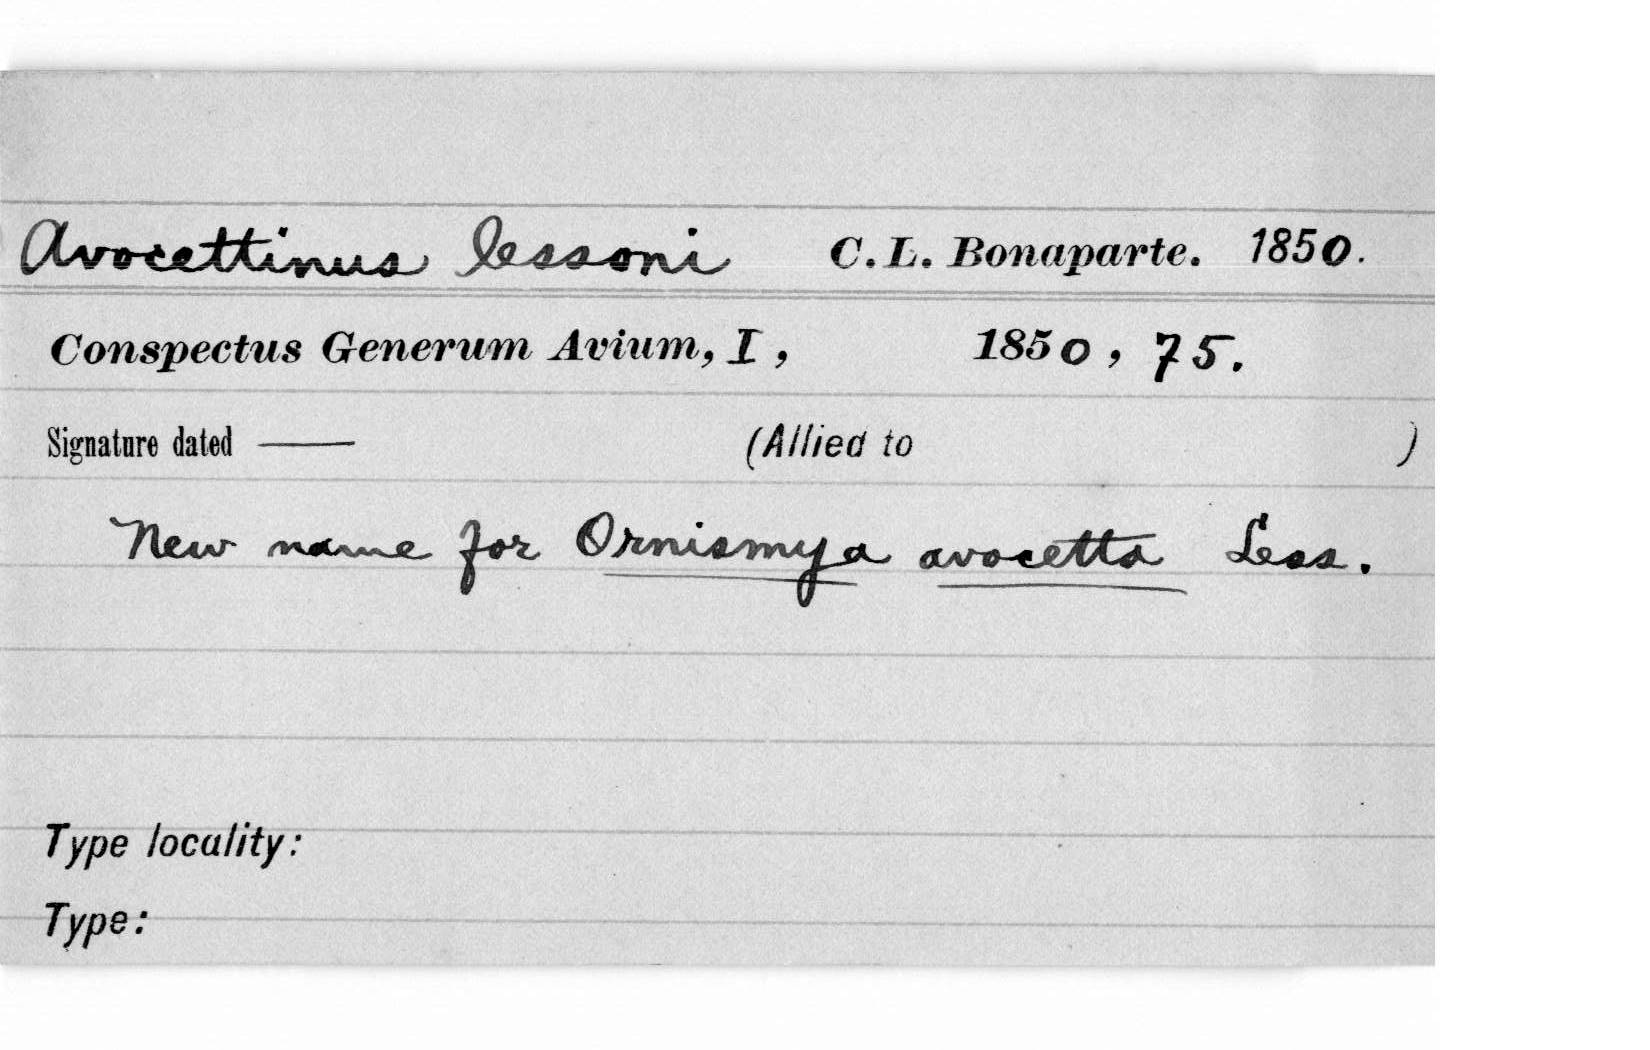 Avocettinus lessoni C. L. Bonaparte. 1850.
Conspectus Generum Avium, I, 1850, 75.
Signature dated —— (Allied to )
New name for Ornismya avocetta Less.
Type locality:
Type: